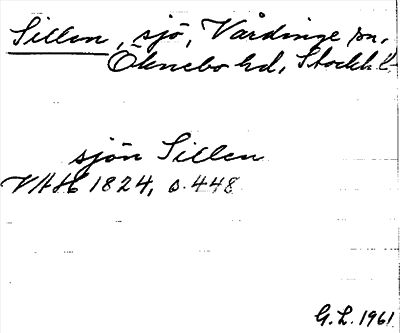 Sillen, sjö, Vårdinge sn,
Öknebo hd, Stockh. l.
sjön Sillen
VAH 1824, s. 448
G.L. 1961